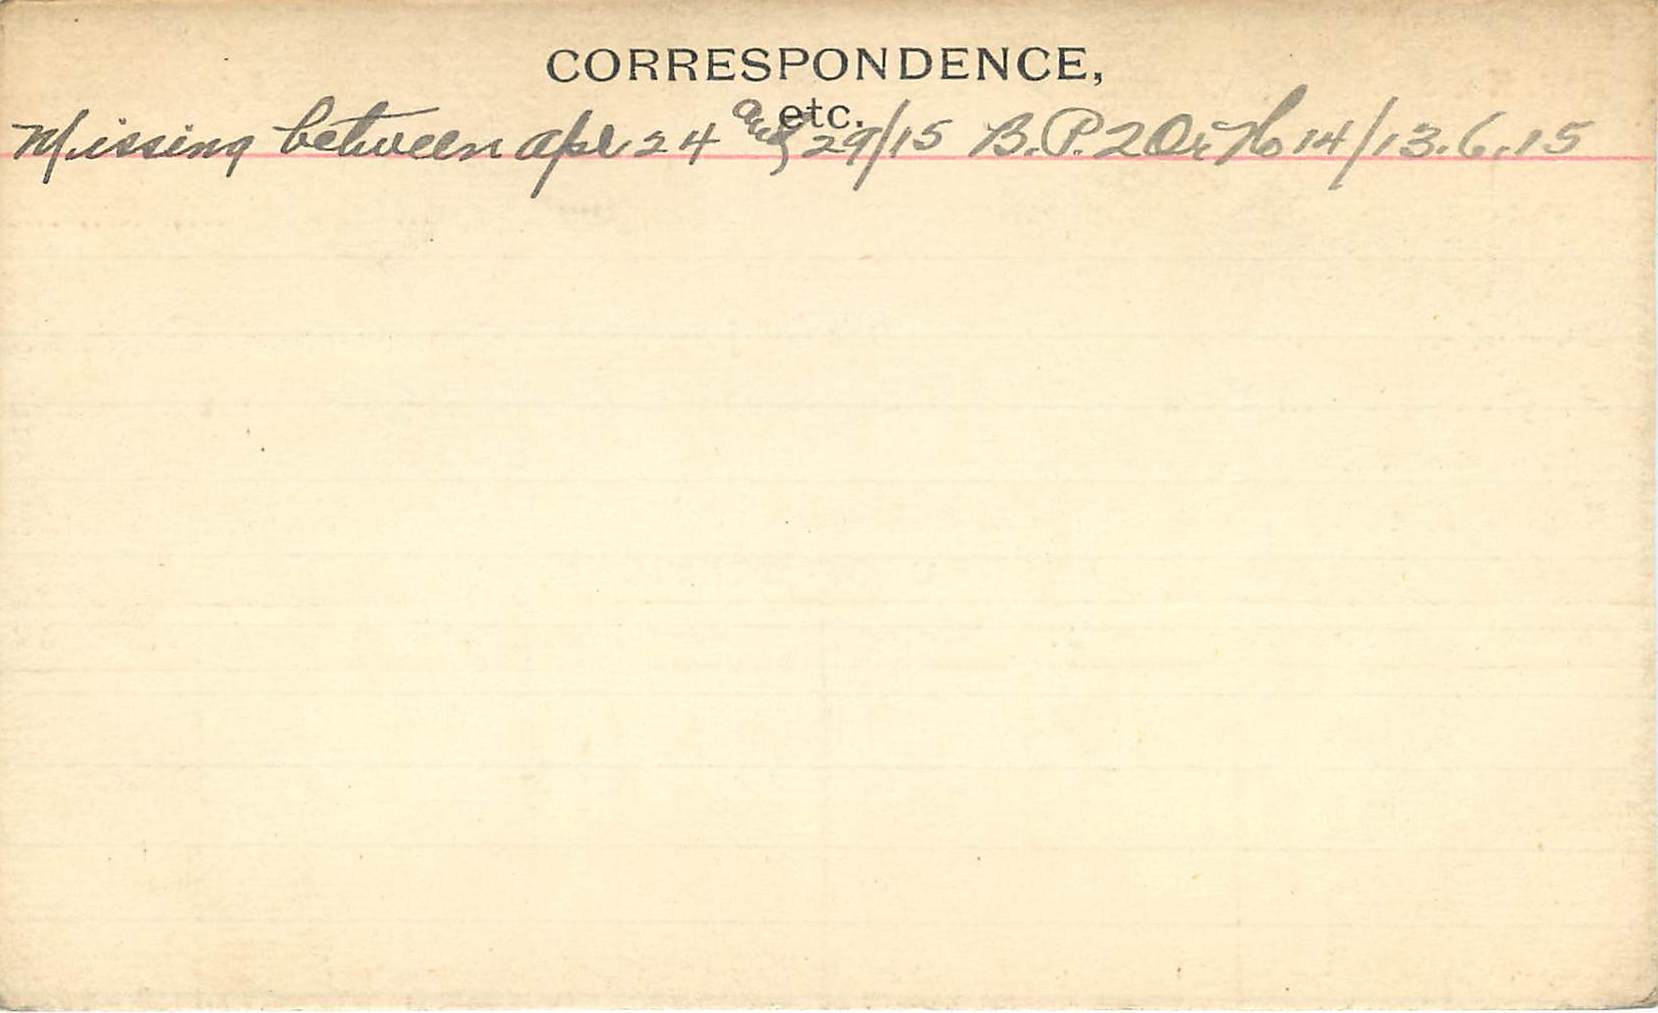 CORRESPONDENCE,
etc.
Missing between Apl 24 and 29/15 B.P. 2 Or No 14/13.6.15